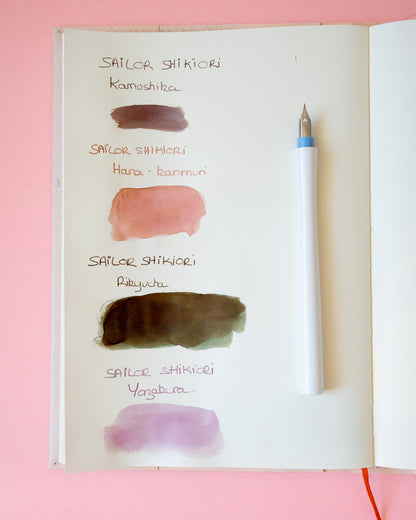 SAILOR SHIKIORI
Kamoshika
SAILOR SHIKIORI
Hana-ikanmuri
SAILOR SHIKIORI
Rikyucha
SAILOR SHIKIORI
Yozakura.